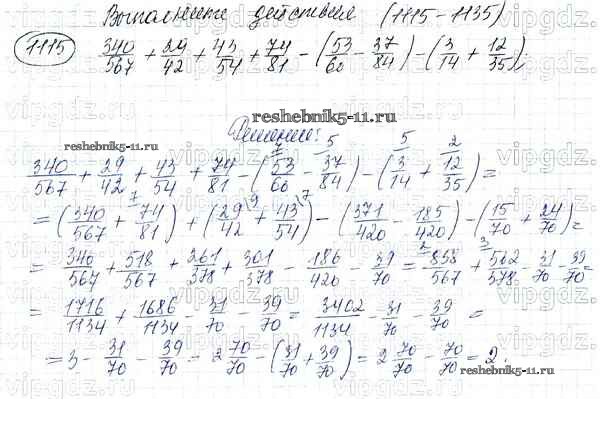 Выполните действие (1115-1135)
1115 340/567 + 29/42 + 43/54 + 74/81 - (53/60 - 37/84) - (3/14 + 12/35)
reshebnik5-11.ru
reshebnik5-11.ru
Решение:
7 5 5 2
340/567 + 29/42 + 43/54 + 74/81 - (53/60 - 37/84) - (3/14 + 12/35) =
= (340/567 + 74/81 \7) + (29/42 \9 + 43/54 \7) - (371/420 - 185/420) - (15/70 + 24/70) =
= 340/567 + 518/567 + 261/378 + 301/378 - 186/420 - 39/70 = 858/567 \2 + 562/378 \3 - 31/70 - 39/70 =
= 1716/1134 + 1686/1134 - 31/70 - 39/70 = 3402/1134 - 31/70 - 39/70 =
= 3 - 31/70 - 39/70 = 2 70/70 - (31/70 + 39/70) = 2 70/70 - 70/70 = 2.
reshebnik5-11.ru
vipgdz.